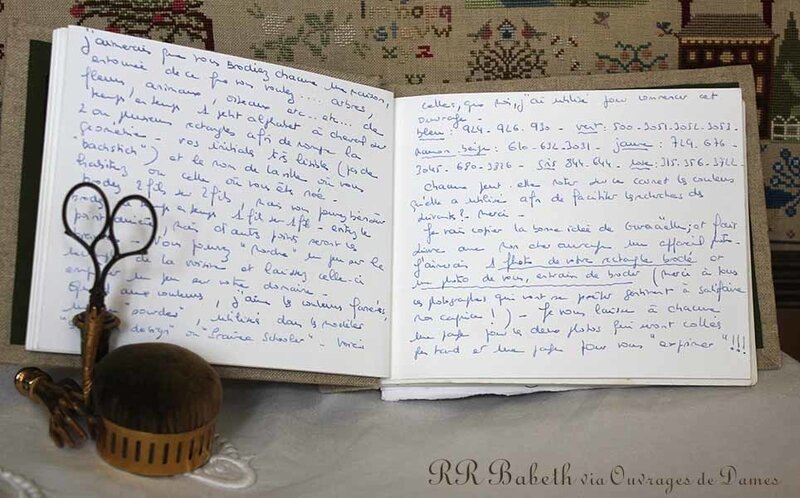 j'aimerais que vous brodiez chacune une maison,
entourée de ce que vous voulez.... arbres,
fleurs, animaux, oiseaux etc... etc... de
temps en temps 1 petit alphabet à cheval sur
2 ou plusieurs rectangles afin de rompre la
géométrie - vos initiales très lisibles (pas de
"backstich") et le nom de la ville où vous
habitez ou celle où vous êtes née -
brodez 2 fils sur 2 fils, mais vous pouvez
de temps en temps 1 fil sur 1 fil - évitez le
point arrière, mais d'autres points seront les
- vous pouvez "mordre" un peu sur le
rectangle de la voisine et laissez celle-ci
un peu sur votre domaine -
Quant aux couleurs, j'aime les couleurs fanées,
"sourdes", utilisées dans les modèles
design" ou "Prairie Schooler" - Voici
celles, que moi, j'ai utilisé pour commencer cet
ouvrage -
bleu: 924 - 926 - 930 - vert: 500 - 3051 - 3052 - 3053 -
marron beige: 610 - 632 - 3031 - jaune: 729 - 676 -
3045 - 680 - 3826 - gris 844 - 644 - rose: 315 - 356 - 3722
chacune peut-elle noter sur ce carnet les couleurs
qu'elle a utilisé afin de faciliter les recherches des
suivants? Merci -
Je vais copier la bonne idée de Gwenaëlle, et faire
suivre avec mon cher ouvrage un appareil
j'aimerais 1 photo de votre rectangle brodé et
une photo de vous, entrain de broder (merci à tous
les photographes qui vont se prêter gentiment à satisfaire
nos caprices!) - Je vous laisse à chacune
une page pour les deux photos qui seront collées
plus tard et une page pour vous "exprimer"!!!
RR Babeth via Ouvrages de Dames